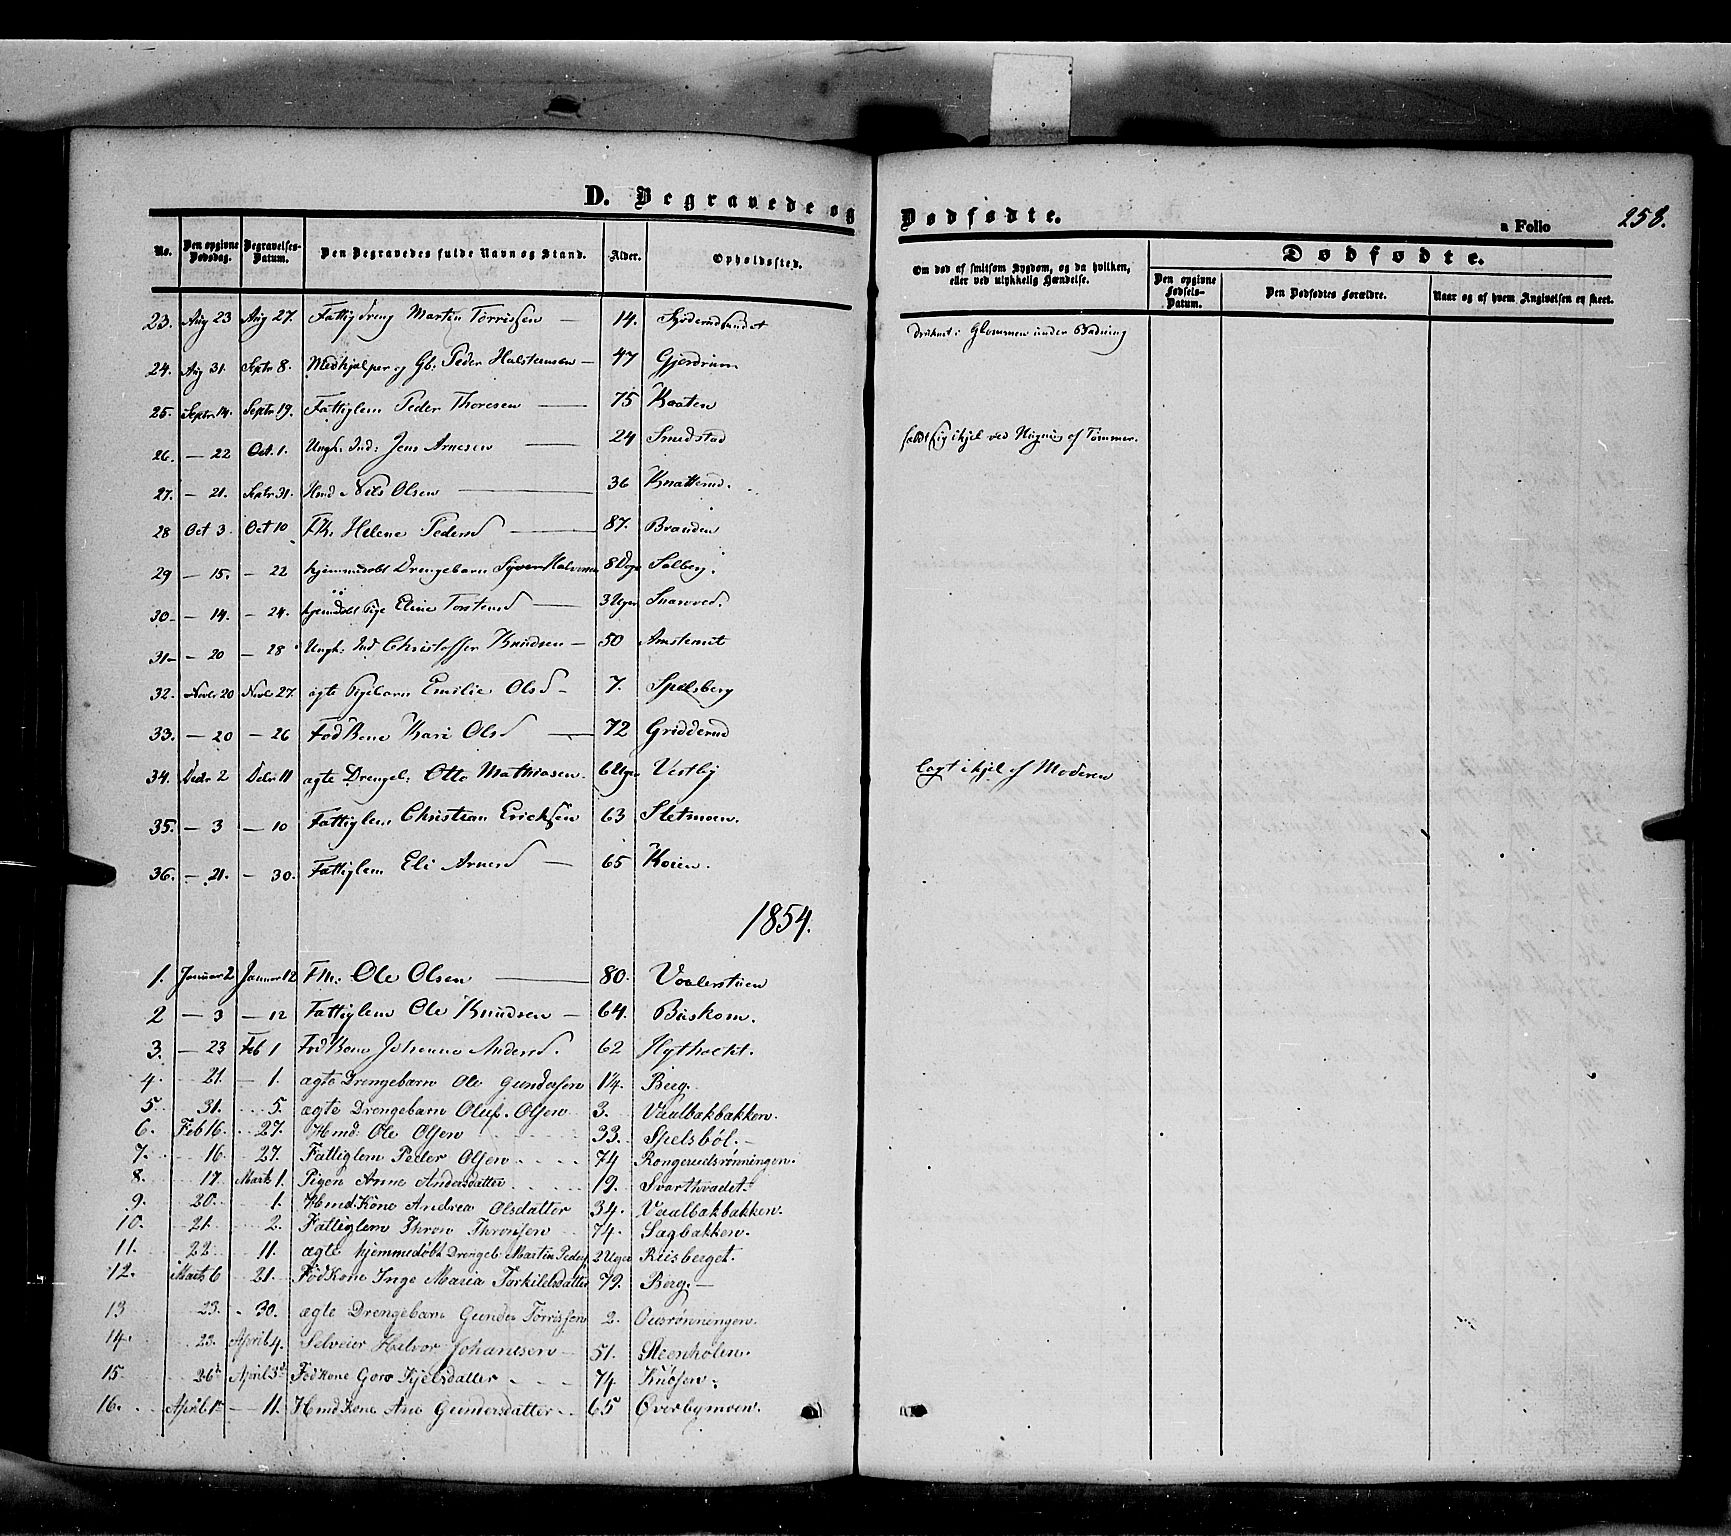 D. Begravede og Dødfødte.
a Folio 258.
No. Den opgivne Dødsdag. Begravelses-Datum. Den Begravedes fulde Navn og Stand. Alder. Opholdssted. Om død af smitsom Sygdom, og da hvilken, eller ved ulykkelig Hændelse. Dødfødte. Den opgivne Fødsels-Datum. Den Dødfødtes Forældre. Naar og af hvem Angivelsen er skeet.
23. Aug 23 Aug 27. Fattigdreng Martin Torrissen — 14. druknet i Glommen under Badning
24. Aug 31. Septr 8. Medhjælper og Gb. Peder Halstensen — 47 Gjerdrum
25. Septr 14. Septr 19. Fattiglem Peder Thoresen — 75 Kraaten
26. — 22 Oct. 1. Ungk: Ind: Jens Arnesen — 24 Smedstad faldt sig ihjel ved af Tømmer.
27. — 21. Septr 31. Hmd Nils Olsen — 36 Knatterud.
28 Oct 3. Oct 10 Fk. Helene Pedersd — 87. Branden
29 — 15. — 22 hjemmedøbt Drengebarn Syver Halvorsen 8 Dage Solberg.
30 — — 14. — 24. hjemdøbt Pige Eline Torstensd — 3 Uger Snareved.
31 — — 20 — 28 Ungk: Ind Christoffer Knudsen — 50
32. Novbr 20 Novbr 27. ægte Pigebarn Emilie Olsd — 7. Spelsberg
33. — 20 — 26 Fød Kone Kari Olsd — 72 Gridderud
34. Decbr 2 Decbr 11 ægte Drengeb: Otto Mathiasen. 6 Uger Vestby lagt ihjel af Moderen
35. — 3 — 10 Fattiglem Christian Ericksen 63 Sletmoen.
36. — 21. — 30. Fattiglem Eli Arnesd — 65 Koien.
1854.
1. Januar 2 Januar 12 Fm: Ole Olsen — 80. Vaalerstuen
2 — 3 — 12 Fattiglem Ole Knudsen — 64. Buskom.
3. — 23 Feb 1 Fød Kone Johanne Andersd. 62
4. 21. — 1. ægte Drengebarn Ole Gundersen 14. Berg.
5. 31. 5. ægte Drengebarn Oluf Olsen 3. Vaalbakbakken.
6. Feb 16. 27. Hmd: Ole Olsen 33. Spelsböl. —
7. 16. 27. Fattiglem Peder Olsen 74 Rongerudsrønningen.
8. 17. Marts 1. Pigen Anne Andersdatter 19. Svarthvadet.
9. 20. 1. Hmd. Kone Andrea Olsdatter 34. Vaalbakbakken.
10. 21. 2. Fattiglem Thron Thronsen 74. Sagbakken.
11. 22 11. ægte hjemmedøbt Drengeb. Martin Peders 2 Uger Riisberget.
12. Marts 6 21. Fød Kone Inge Maria Torkildsdatter 79. Berg. —
13 23. 30. ægte Drengebarn Gunder Torrissen 2. Ousrønningen.
14. 23. April 4. Selveier Halvor Johannesen 51. Steenholen.
15 26. April 3 Fødkone Goro Kjelsdatter 74 Knøsen.
16. April 1 11. Hmd Kone Ane Gundersdatter 65 Øverbymoen.